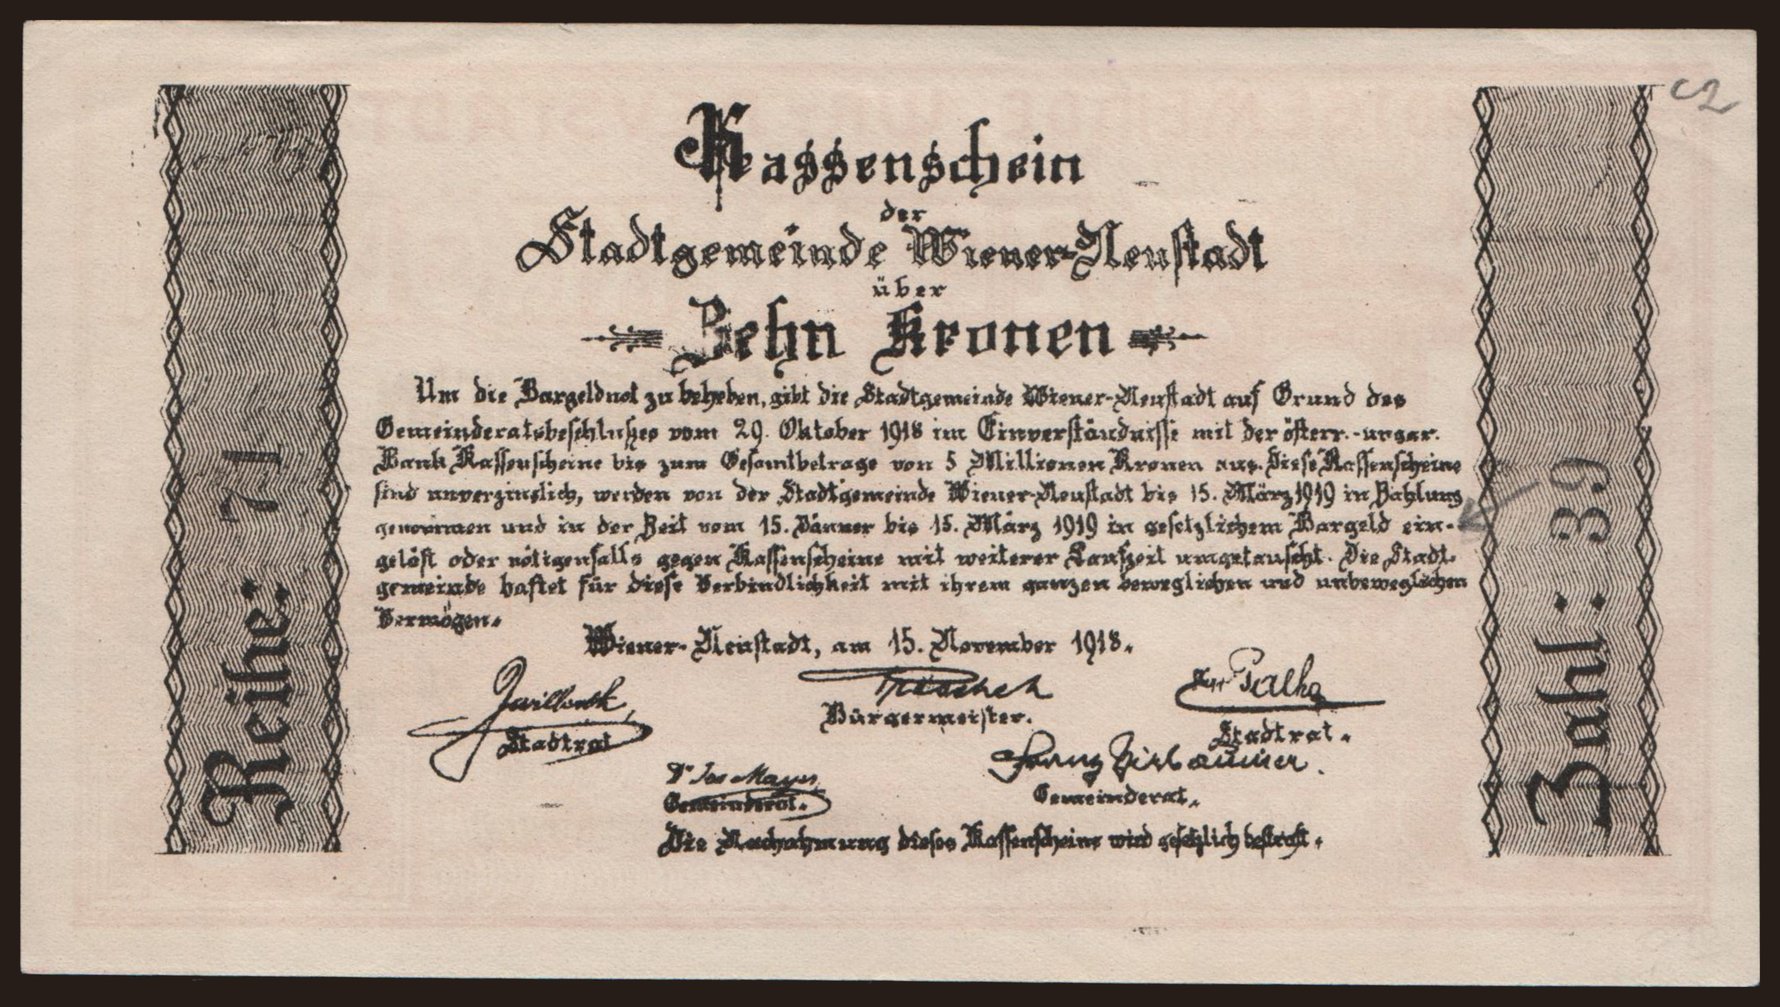 Reihe: 71
Kassenschein
der
Stadtgemeinde Wiener-Neustadt
über
Zehn Kronen
Um die Bargeldnot zu beheben, gibt die Stadtgemeinde Wiener-Neustadt auf Grund des
Gemeinderatsbeschlußes vom 29. Oktober 1918 im Einverständnisse mit der österr.-ungar.
Bank Kassenscheine bis zum Gesamtbetrage von 5 Millionen Kronen aus. Diese Kassenscheine
sind unverzinslich, werden von der Stadtgemeinde Wiener-Neustadt bis 15. März 1919 in Zahlung
genommen und in der Zeit vom 15. Jänner bis 15. März 1919 in gesetzlichem Bargeld ein-
gelöst oder nötigenfalls gegen Kassenscheine mit weiterer Laufzeit umgetauscht. Die Stadt-
gemeinde haftet für diese Verbindlichkeit mit ihrem ganzen beweglichen und unbeweglichen
Vermögen.
Wiener-Neustadt, am 15. November 1918.
Stadtrat
Bürgermeister.
Stadtrat.
Dr Jos Mayer
Gemeinderat.
Franz
Gemeinderat.
Die Nachahmung dieses Kassenscheins wird gesetzlich bestraft.
Zahl: 39
c2